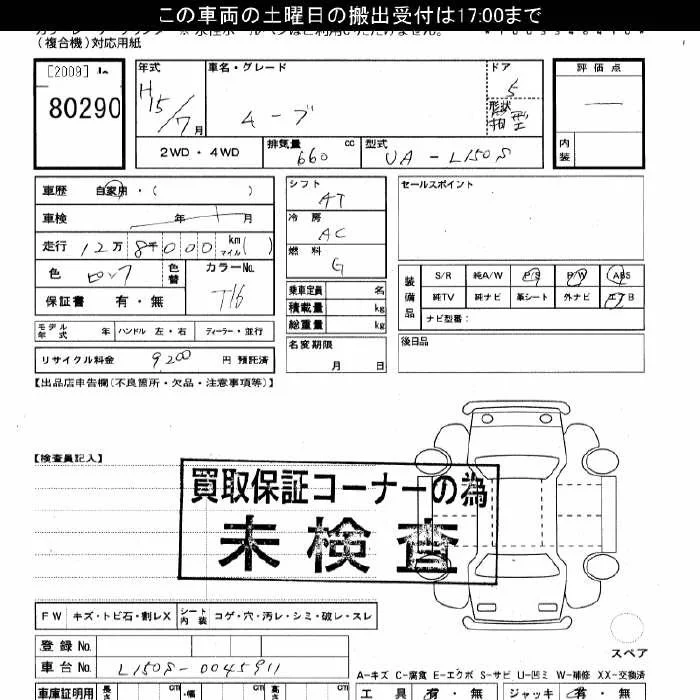 この車両の土曜日の搬出受付は17:00まで
(複合機)対応用紙
[2009]
80290
年式
H15/7月
車名・グレード
ムーブ
ドア
5
形状
箱型
評価点
内装
2WD・4WD
排気量 660 cc
型式 UA-L150S
車歴 自家用・( )
車検 年 月
走行 12万8千000 km マイル( )
色
色替
カラーNo.
T16
保証書 有・無
シフト AT
冷房 AC
燃料 G
乗車定員 名
積載量 kg
総重量 kg
セールスポイント
装備品
S/R 純A/W P/S P/W ABS
純TV 純ナビ 革シート 外ナビ エアB
ナビ型番:
モデル年式 年 ハンドル 左・右 ディーラー・並行
リサイクル料金 9200 円 預託済
名変期限
月 日
後日品
【出品店申告欄(不良箇所・欠品・注意事項等)】
【検査員記入】
買取保証コーナーの為
未検査
FW キズ・トビ石・割レX シート内装 コゲ・穴・汚レ・シミ・破レ・スレ
スペア
登録No.
車台No. L150S-0045911
A-キズ C-腐食 E-エクボ S-サビ U-凹ミ W-補修 XX-交換済
車庫証明用 長さ cm ・幅 cm 高さ cm
工具 有・無 ジャッキ 有・無